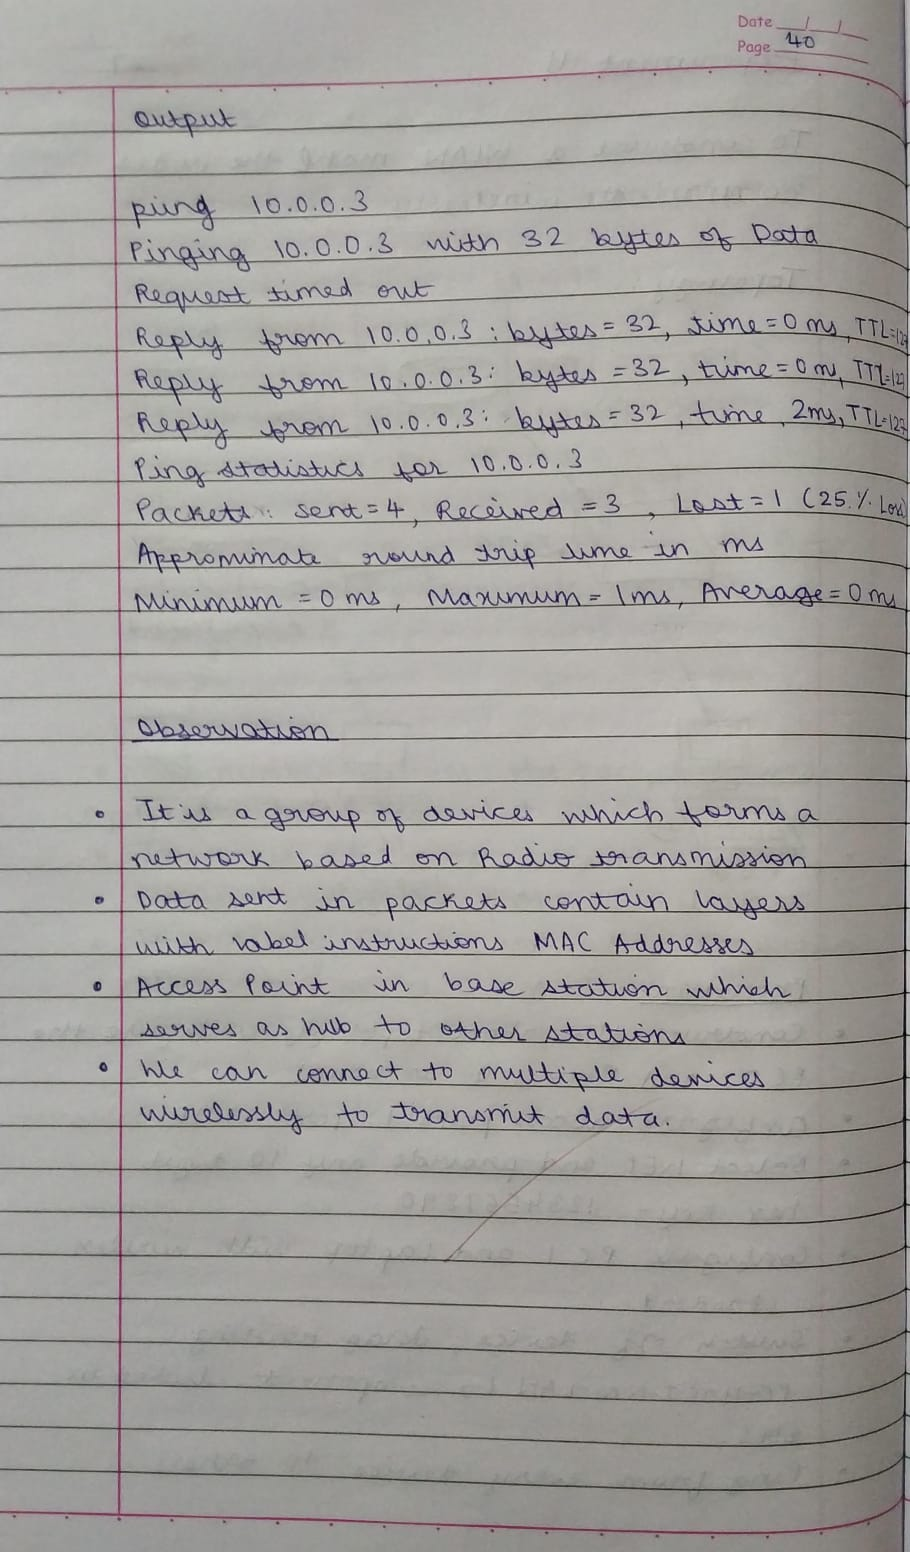 Date / /
Page 40
Output
ping 10.0.0.3
Pinging 10.0.0.3 with 32 bytes of Data
Request timed out
Reply from 10.0.0.3 : bytes = 32, time = 0 ms, TTL=127
Reply from 10.0.0.3: bytes = 32, time = 0 ms, TTL=127
Reply from 10.0.0.3: bytes = 32, time 2ms, TTL=127
Ping statistics for 10.0.0.3
Packets: sent = 4, Received = 3, Lost = 1 (25 % Loss)
Approximate round trip time in ms
Minimum = 0 ms, Maximum = 1ms, Average = 0 ms
Observation
• It is a group of devices which forms a
network based on Radio transmission
• Data sent in packets contain layers
with label instructions MAC Addresses
• Access Point in base station which
serves as hub to other stations
• We can connect to multiple devices
wirelessly to transmit data.